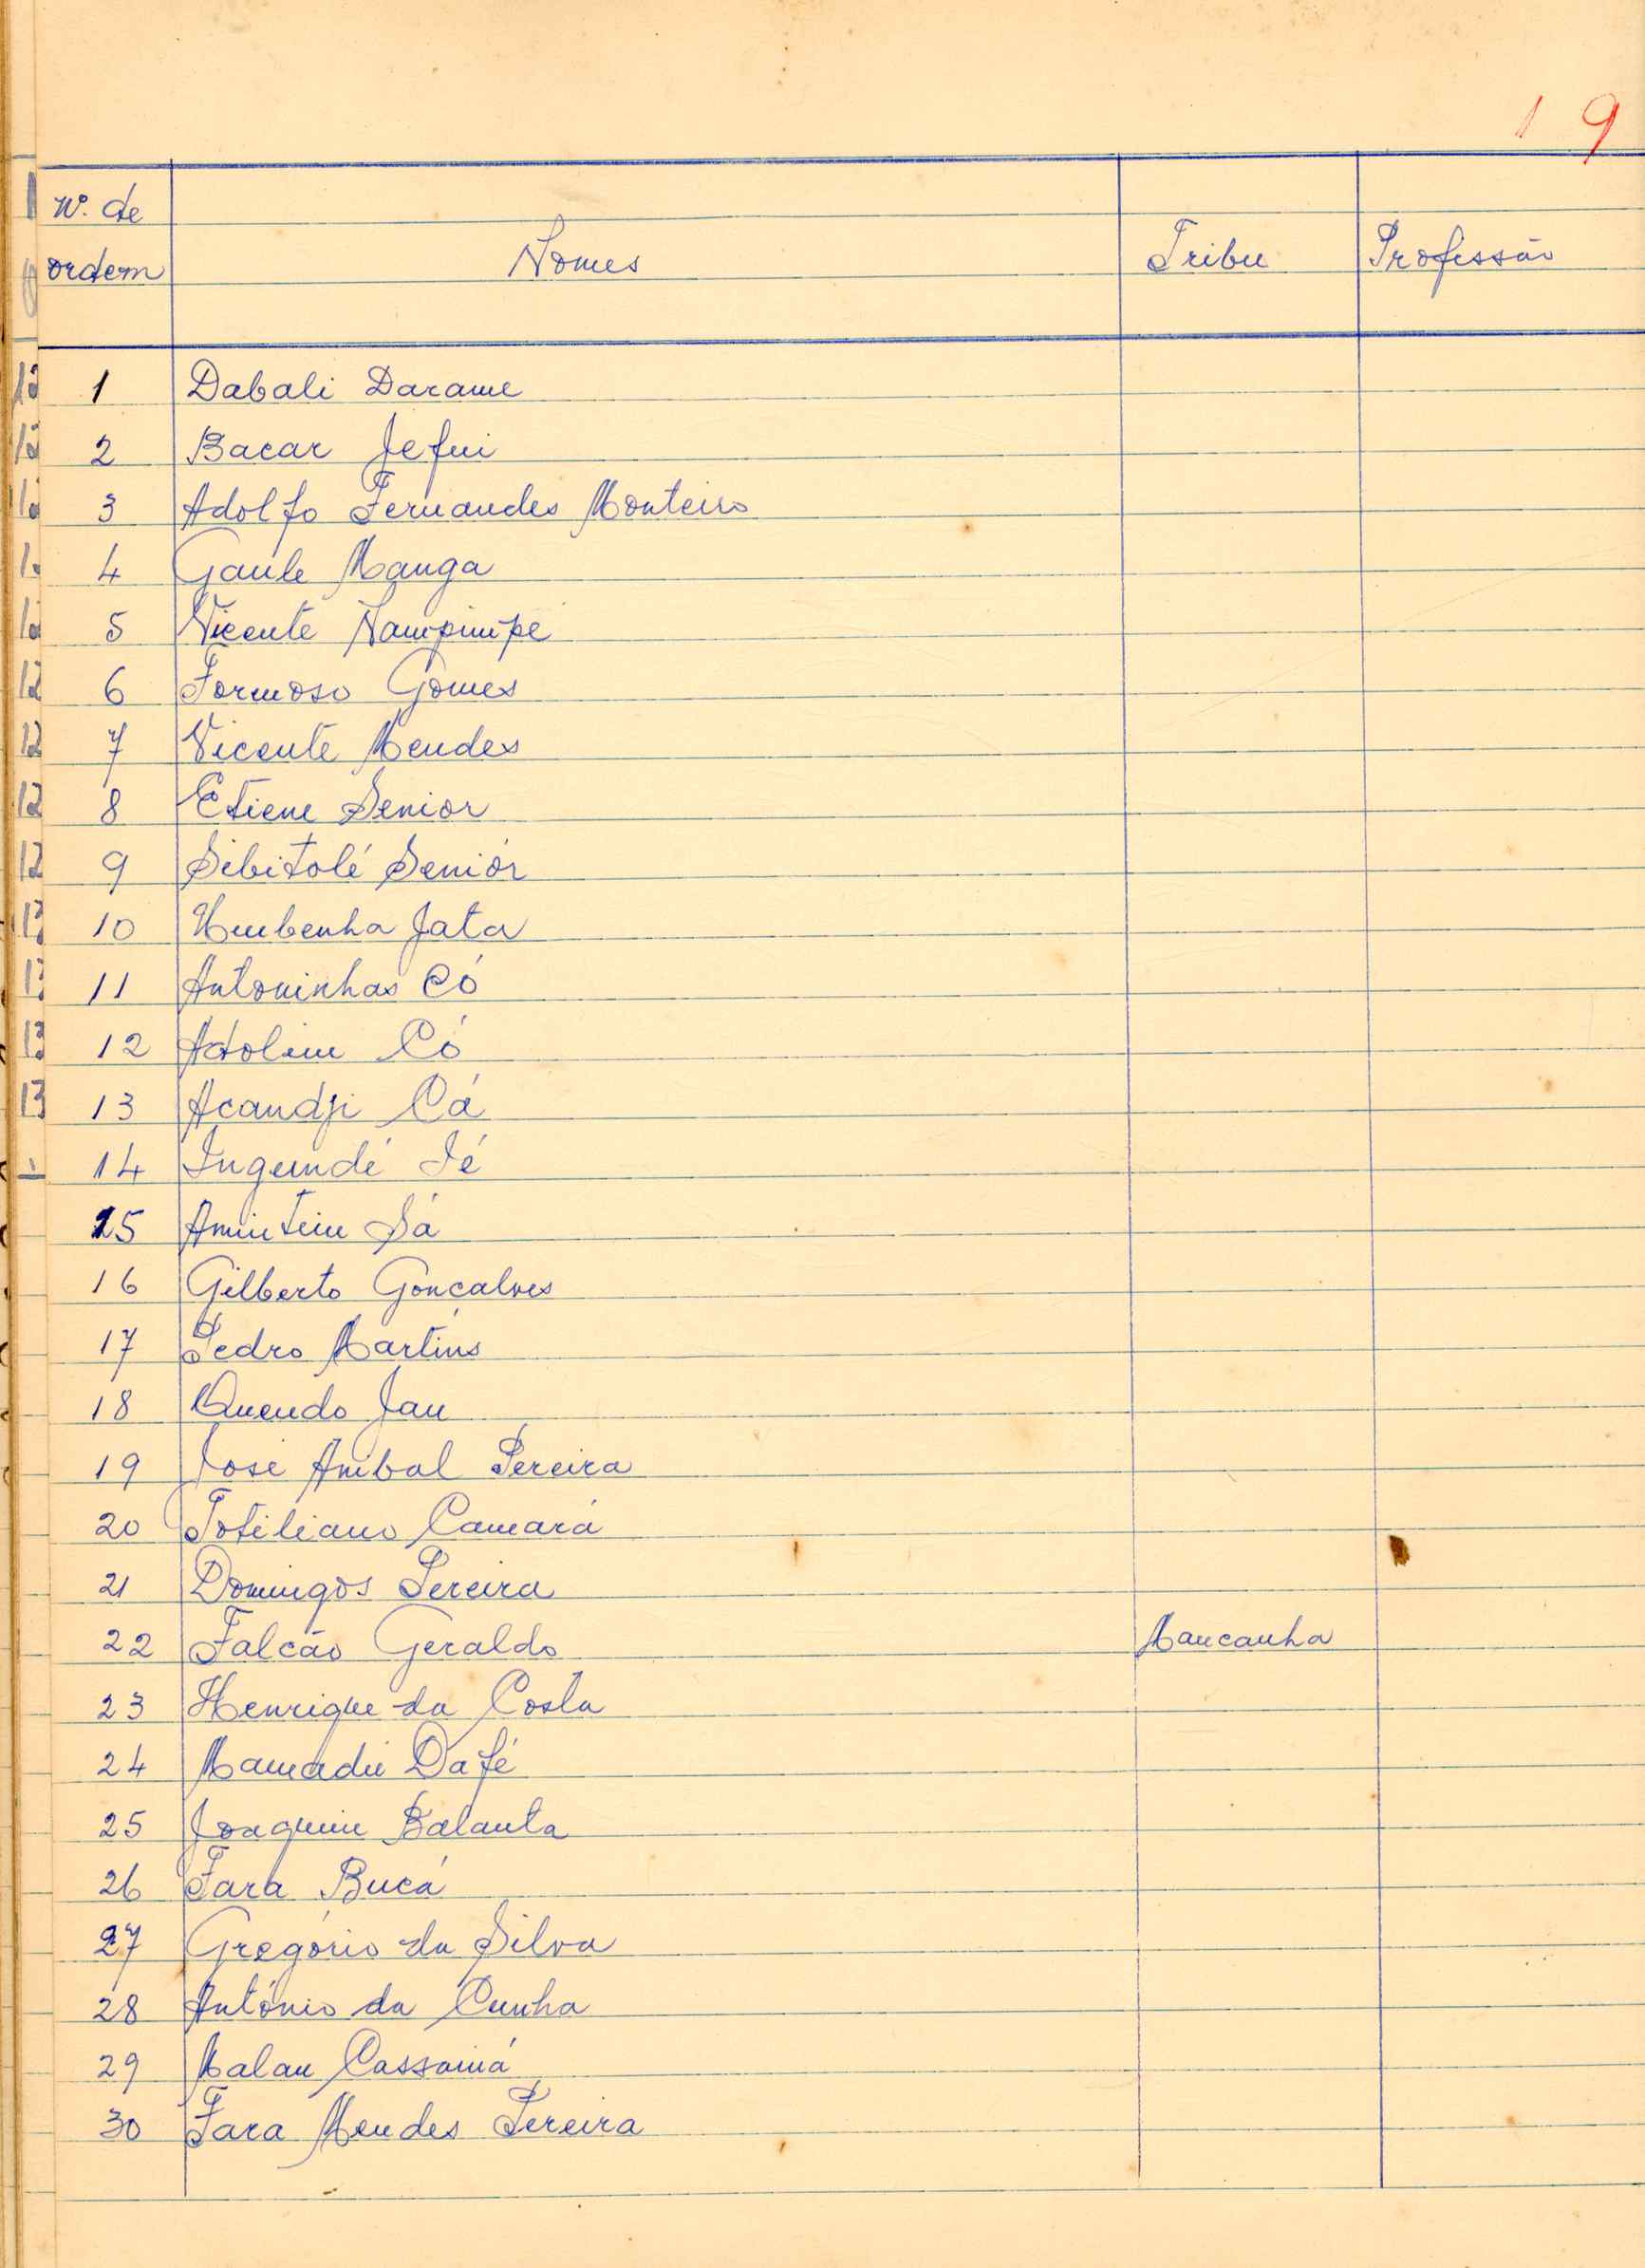 19
Nº. de
ordem Nomes Tribu Professão
1 Dabali Darame
2 Bacar Jefui
3 Adolfo Fernandes Monteiro
4 Gaule Manga
5 Vicente Nampimpe
6 Formoso Gomes
7 Vicente Mendes
8 Etiene Senior
9 Sibitolé Seniór
10 Umbenha Jata
11 Antoninhas Có
12 Adolim Có
13 Acandji Cá
14 Ingundé Ié
15 Amintim Sá
16 Gilberto Goncalves
17 Pedro Martins
18 Quendo Jau
19 José Anibal Pereira
20 Totiliano Camará
21 Domingos Pereira
22 Falcão Geraldo Mancanha
23 Henrique da Costa
24 Mamadu Dafé
25 Joaquim Balanta
26 Fara Bucá
27 Gregório da Silva
28 António da Cunha
29 Malan Cassamá
30 Fara Mendes Pereira